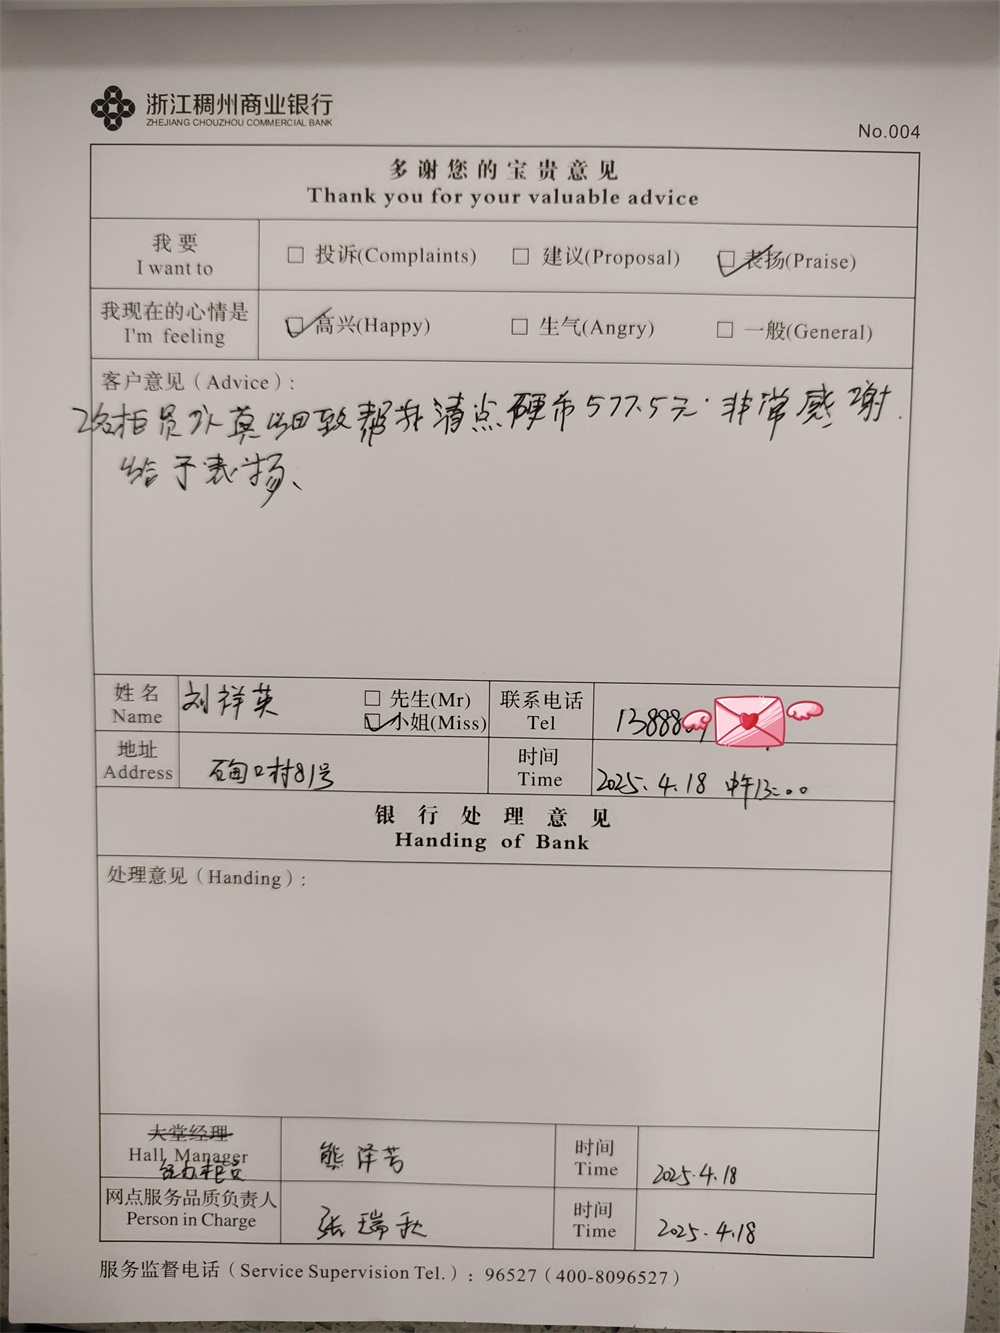 浙江稠州商业银行
ZHEJIANG CHOUZHOU COMMERCIAL BANK
No.004
多谢您的宝贵意见
Thank you for your valuable advice
我要
I want to
投诉(Complaints) 建议(Proposal) 表扬(Praise)
我现在的心情是
I'm feeling
高兴(Happy) 生气(Angry) 一般(General)
客户意见（Advice）:
2名柜员认真细致帮我清点硬币577.5元. 非常感谢.
给予表扬、
姓名
Name
刘祥英
先生(Mr)
小姐(Miss)
联系电话
Tel
13888
地址
Address
石甸口村81号
时间
Time
2025.4.18 中午13:00
银行处理意见
Handing of Bank
处理意见（Handing）:
大堂经理
Hall Manager
经办柜员
熊泽芳
时间
Time
2025.4.18
网点服务品质负责人
Person in Charge
张瑞秋
时间
Time
2025.4.18
服务监督电话（Service Supervision Tel.）: 96527（400-8096527）